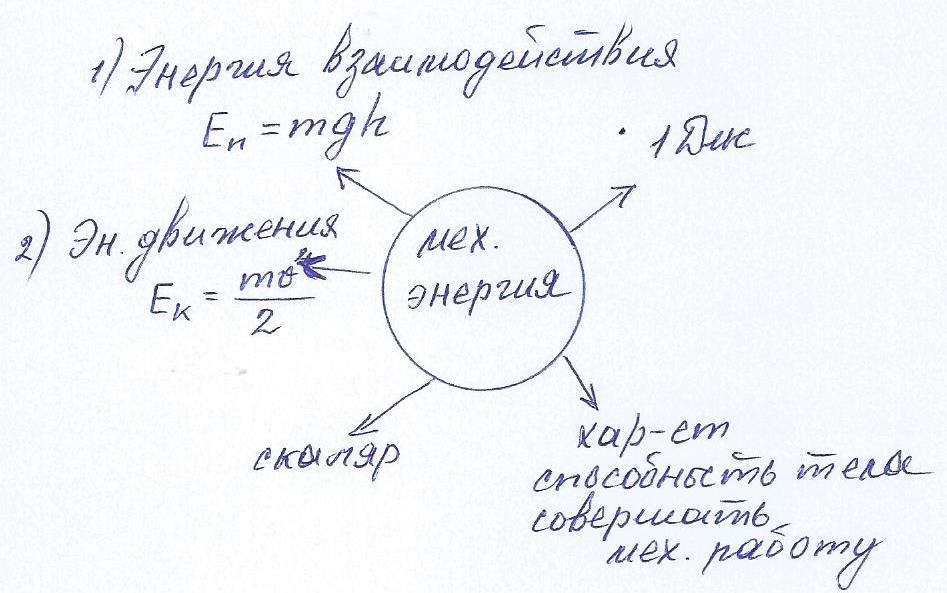 1) Энергия взаимодействия
Eп = mgh
1 Дж
2) Эн. движения
Eк = mv²/2
мех.
энергия
скаляр
хар-ет
способность тела
совершать
мех. работу